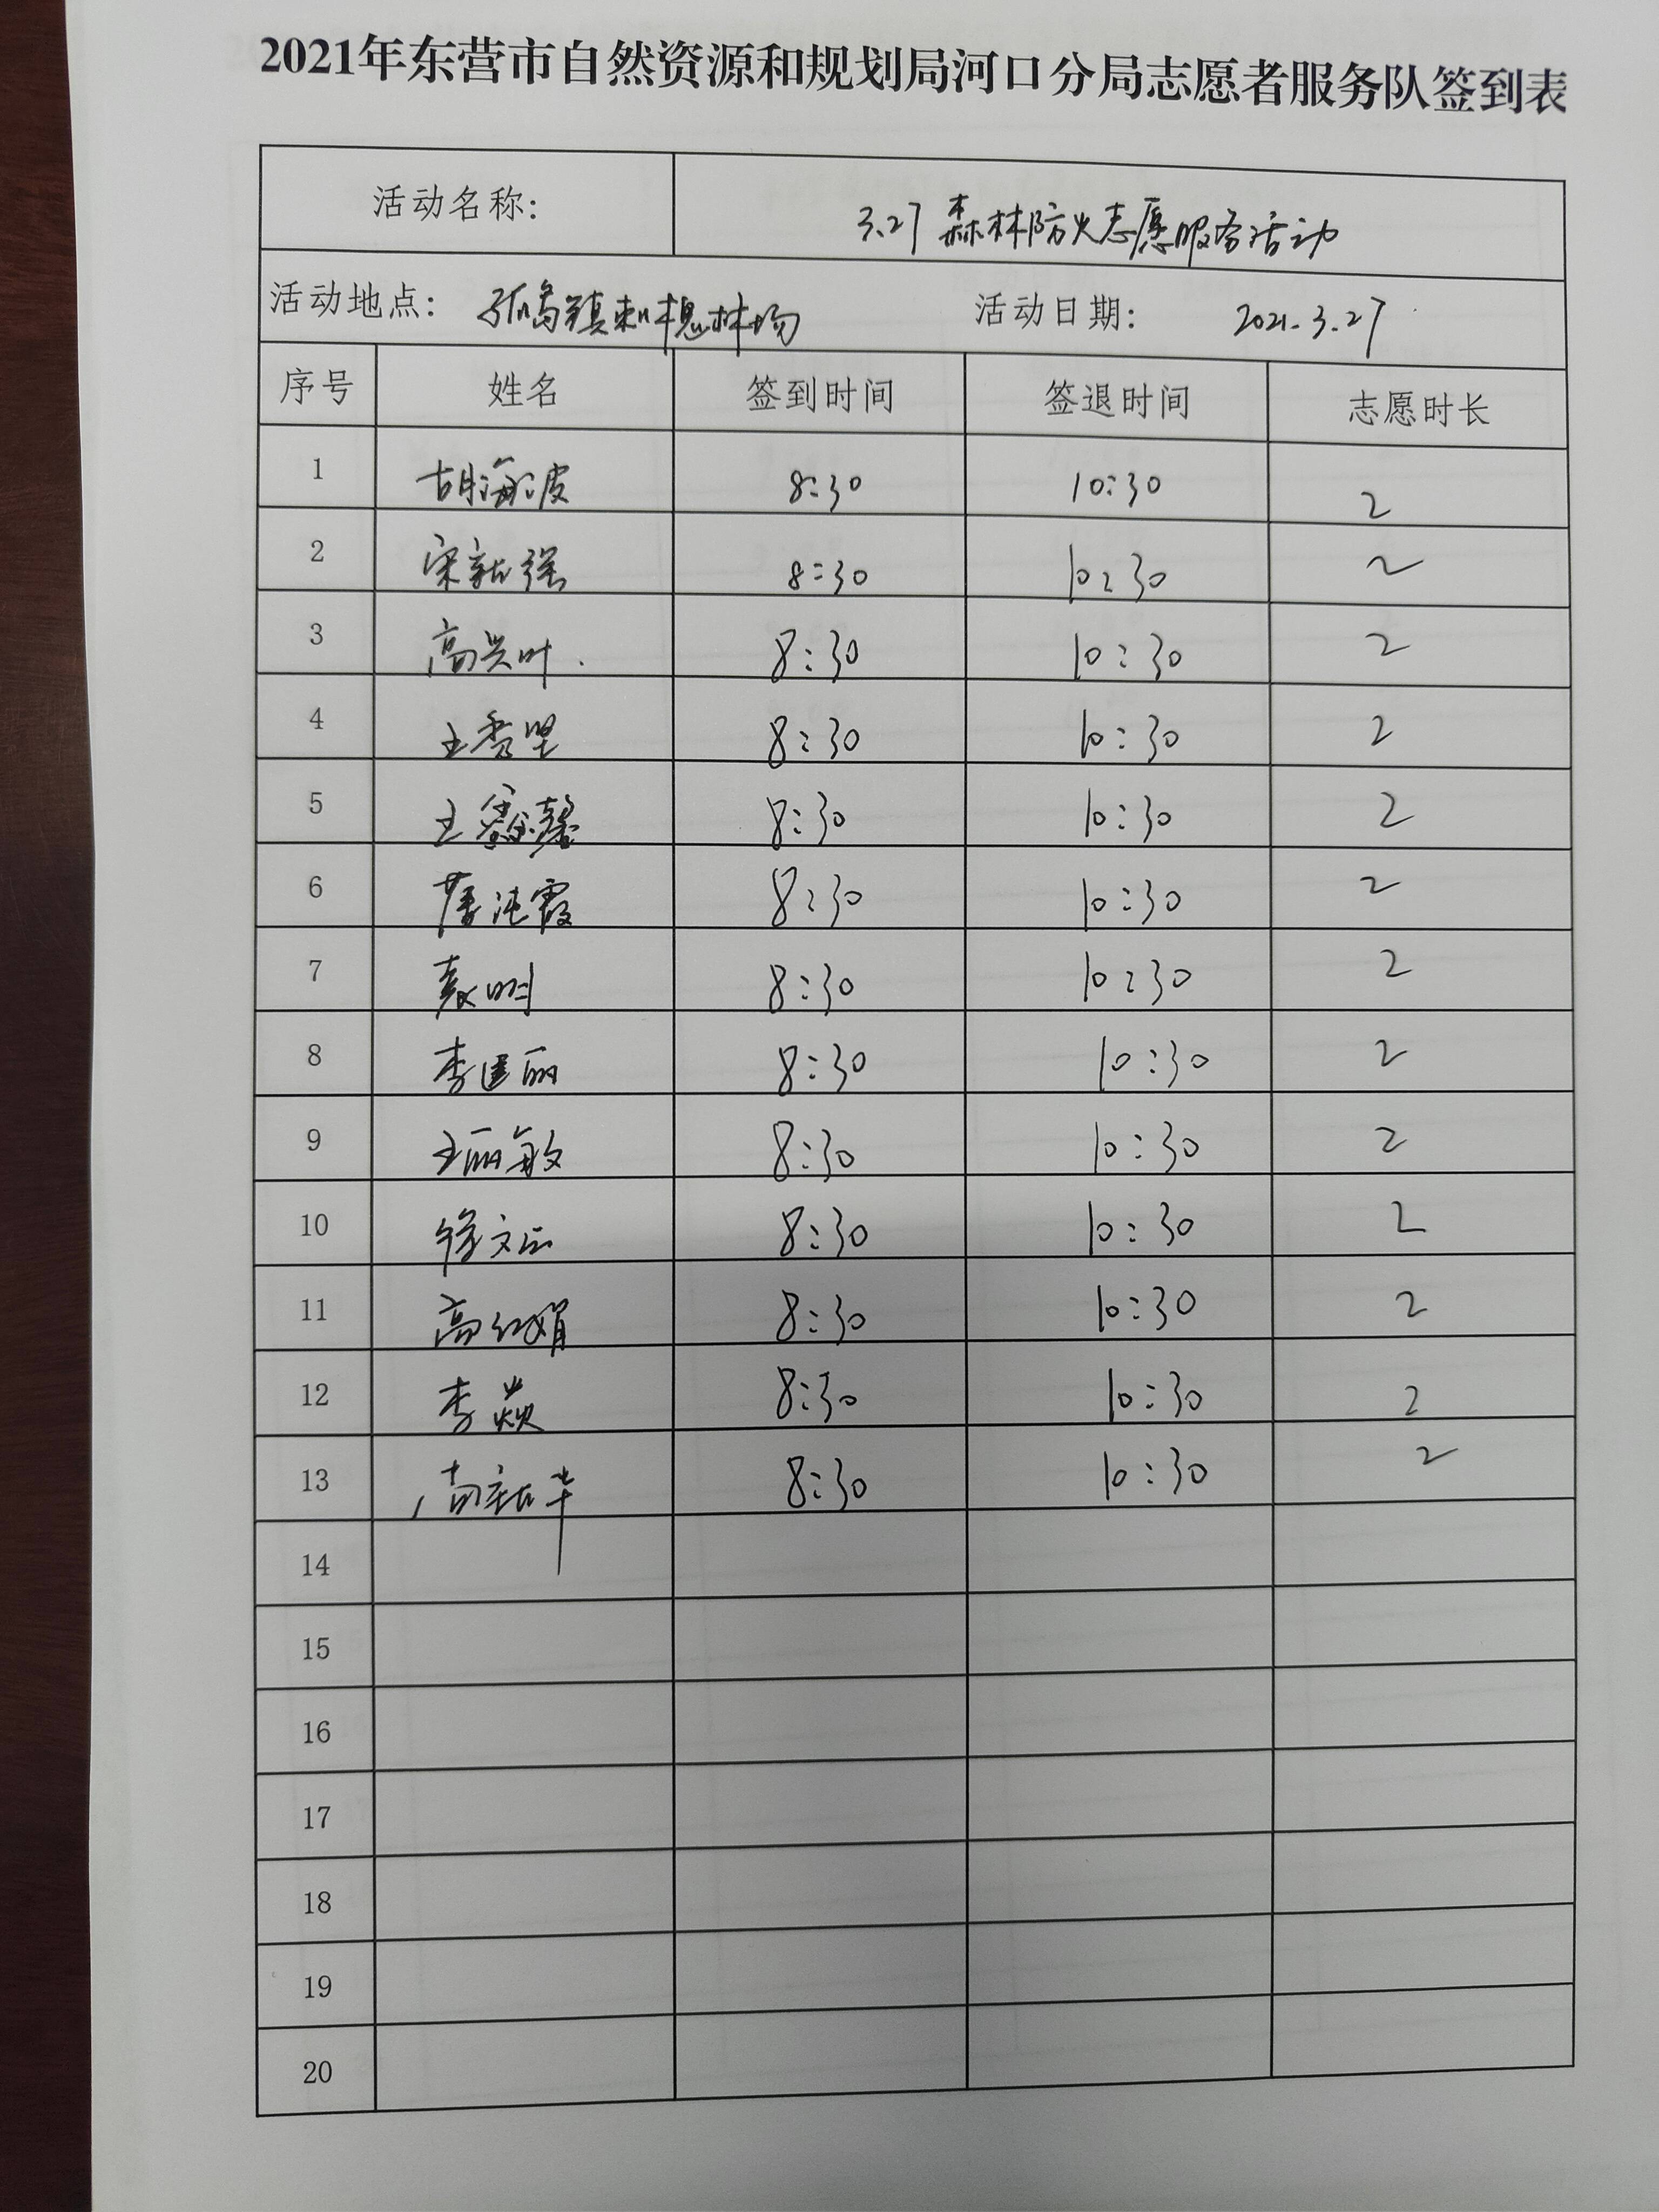 2021年东营市自然资源和规划局河口分局志愿者服务队签到表
活动名称: 3.27 森林防火志愿服务活动
活动地点: 孤岛镇刺槐林场 活动日期: 2021.3.27
序号 姓名 签到时间 签退时间 志愿时长
1 胡海波 8:30 10:30 2
2 宋新强 8:30 10:30 2
3 高兴叶 8:30 10:30 2
4 王秀坚 8:30 10:30 2
5 王馨 8:30 10:30 2
6 霞 8:30 10:30 2
7 袁明 8:30 10:30 2
8 李建丽 8:30 10:30 2
9 王丽敏 8:30 10:30 2
10 徐文 8:30 10:30 2
11 高红娟 8:30 10:30 2
12 李焱 8:30 10:30 2
13 新华 8:30 10:30 2
14
15
16
17
18
19
20